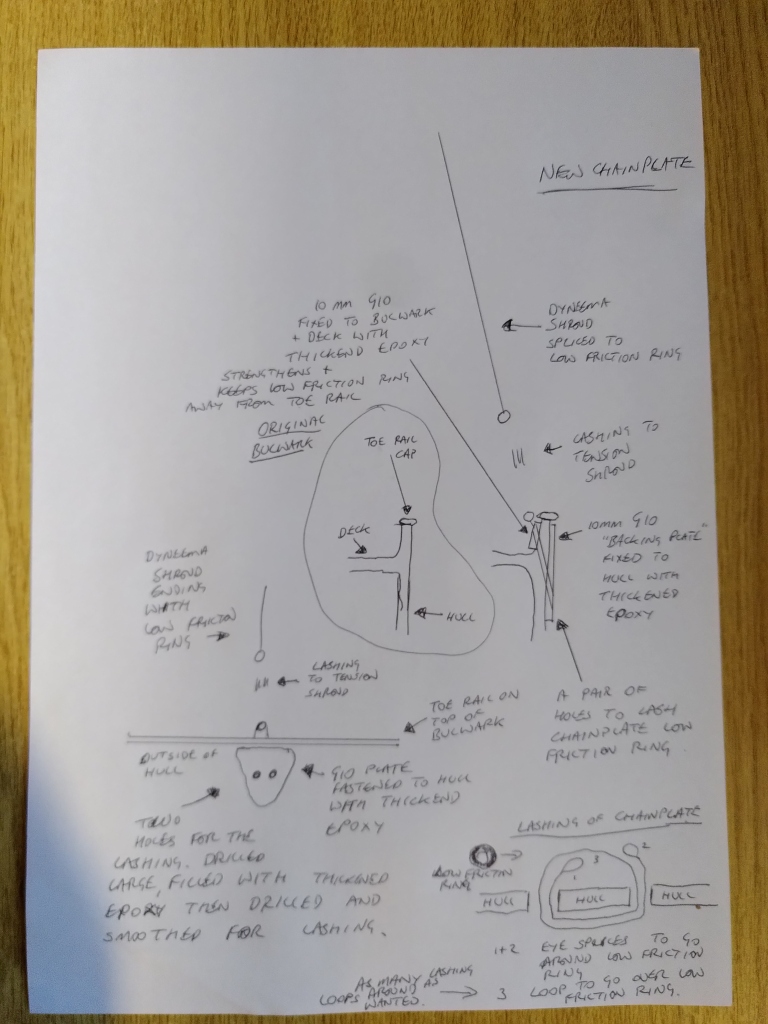 NEW CHAINPLATE
10 mm G10
FIXED TO BULWARK
+ DECK WITH
THICKEND EPOXY
STRENGTHENS +
KEEPS LOW FRICTION RING
AWAY FROM TOE RAIL
DYNEEMA
SHROUD
SPLICED TO
LOW FRICTION RING
ORIGINAL
BULWARK
TOE RAIL
CAP
DECK
HULL
LASHING TO
TENSION
SHROUD
10mm G10
"BACKING PLATE"
FIXED TO
HULL WITH
THICKENED
EPOXY
DYNEEMA
SHROUD
ENDING
WITH
LOW FRICTION
RING
LASHING
TO TENSION
SHROUD
TOE RAIL ON
TOP OF
BULWARK
A PAIR OF
HOLES TO LASH
CHAINPLATE LOW
FRICTION RING.
OUTSIDE OF
HULL
G10 PLATE
FASTENED TO HULL
WITH THICKEND
EPOXY
TWO
HOLES FOR THE
LASHING. DRILLED
LARGE, FILLED WITH THICKENED
EPOXY THEN DRILLED AND
SMOOTHED FOR LASHING.
LASHING OF CHAINPLATE
LOW FRICTION
RING
1
3
2
HULL
HULL
HULL
1+2 EYE SPLICES TO GO
AROUND LOW FRICTION
RING
3 LOOP TO GO OVER LOW
FRICTION RING.
AS MANY LASHING
LOOPS AROUND AS
WANTED.